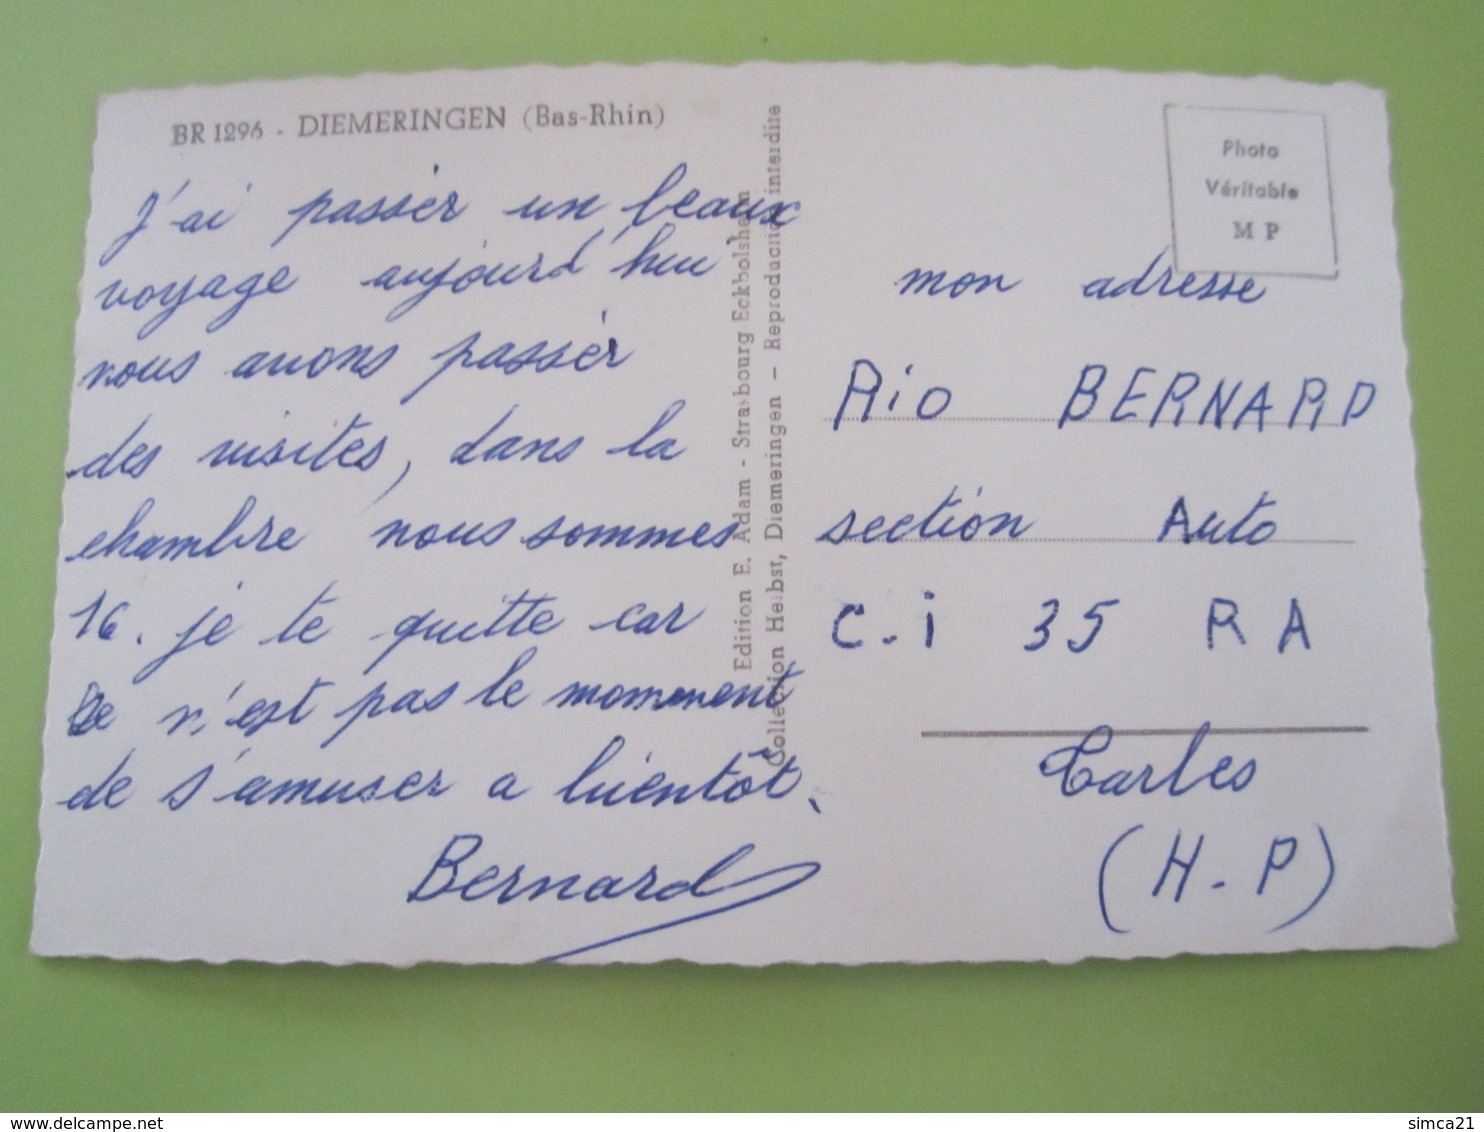 BR 1296 - DIEMERINGEN (Bas-Rhin)
J'ai passér un beaux
voyage aujourd'hui
nous avons passér
des visites, dans la
chambre nous sommes
16. je te quitte car
ce n'est pas le momment
de s'amuser a bientôt.
Bernard
Edition E. Adam - Strasbourg Eckbolsheim
Collection Herbst, Diemeringen - Reproduction interdite
Photo
Véritable
M P
mon adresse
Rio BERNARD
section Auto
C.i 35 RA
Tarbes
(H.P)
www.delcampe.net
simca21